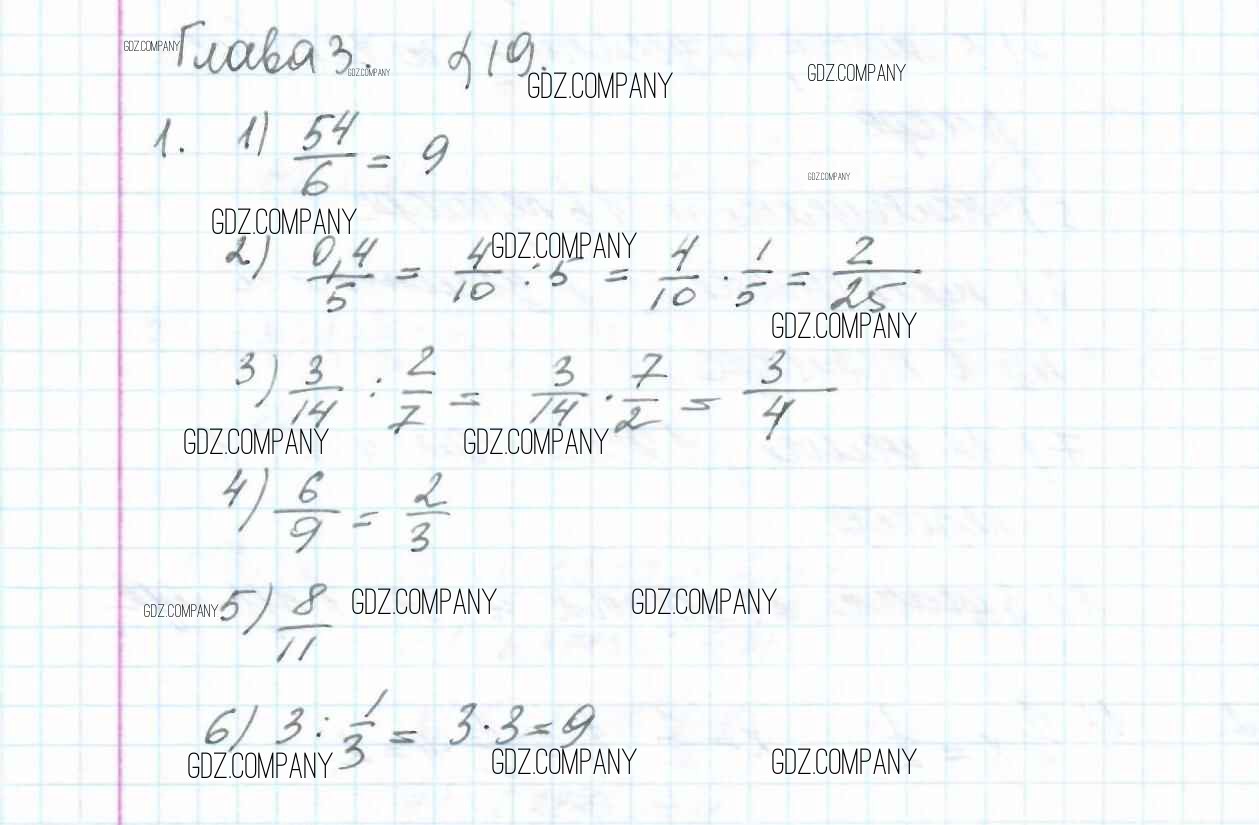 GDZ.COMPANY Глава 3. § 19.
GDZ.COMPANY GDZ.COMPANY GDZ.COMPANY
1. 1) 54/6 = 9
GDZ.COMPANY
GDZ.COMPANY
GDZ.COMPANY
2) 0,4/5 = 4/10 : 5 = 4/10 · 1/5 = 2/25
GDZ.COMPANY
3) 3/14 : 2/7 = 3/14 · 7/2 = 3/4
GDZ.COMPANY GDZ.COMPANY
4) 6/9 = 2/3
GDZ.COMPANY 5) 8/11 GDZ.COMPANY GDZ.COMPANY
6) 3 : 1/3 = 3 · 3 = 9
GDZ.COMPANY GDZ.COMPANY GDZ.COMPANY